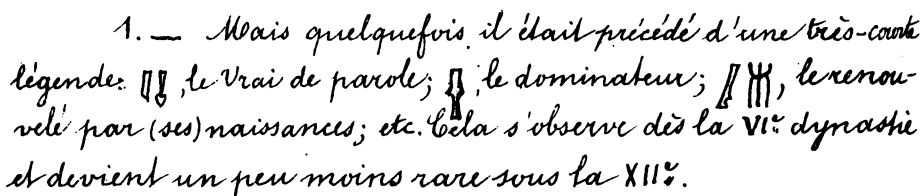 1. — Mais quelquefois il était précédé d'une très-courte
légende: , le Vrai de parole; , le dominateur; , le renou-
velé par (ses) naissances; etc. Cela s'observe dès la VIe dynastie
et devient un peu moins rare sous la XIIe.